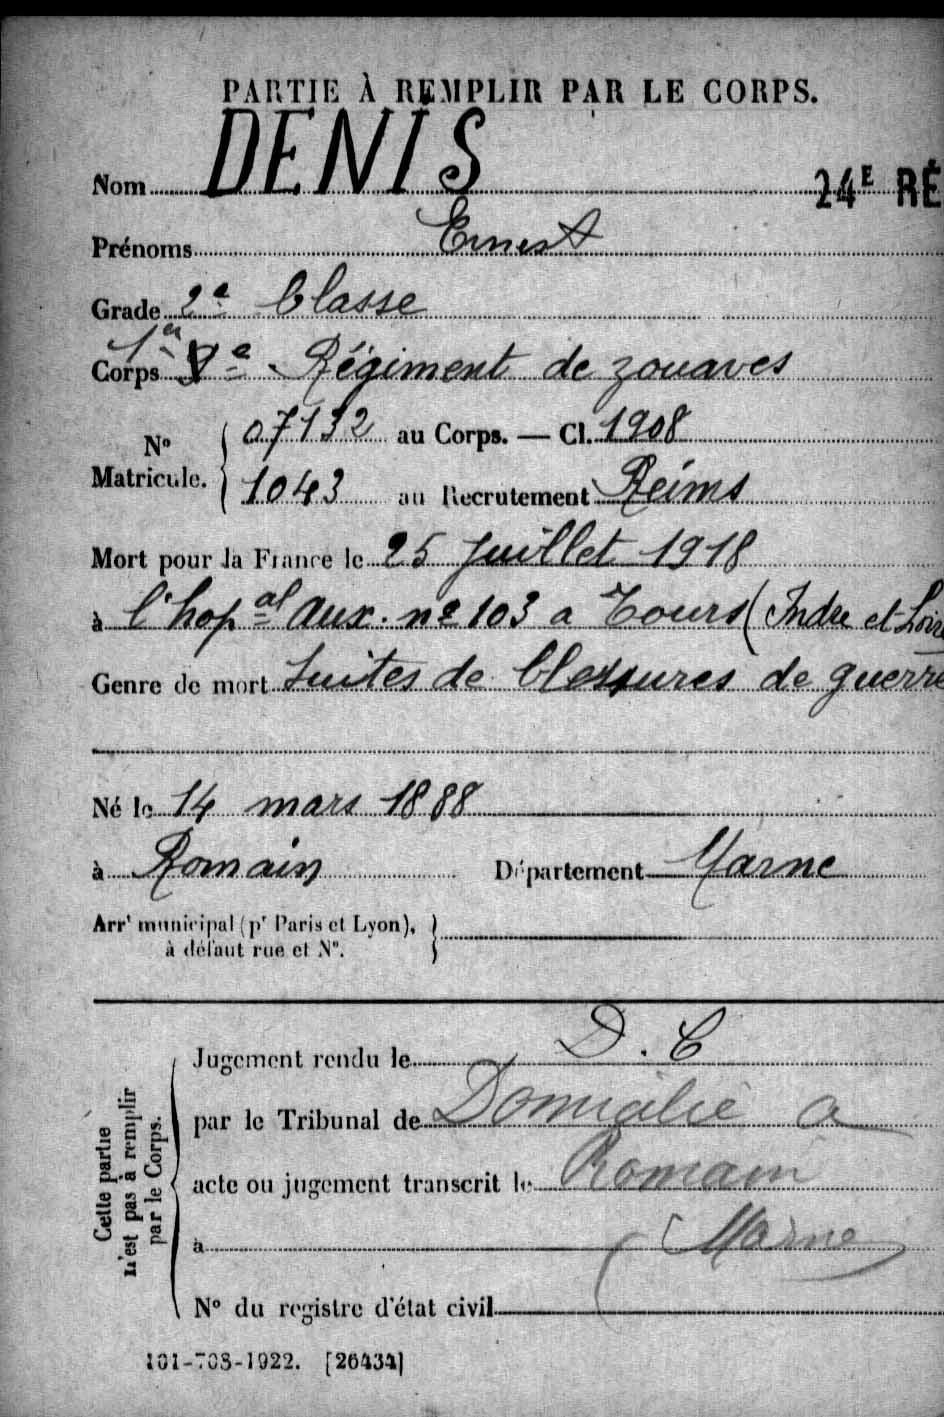 PARTIE À REMPLIR PAR LE CORPS.
Nom DENIS 24E RÉ
Prénoms Ernest
Grade 2e Classe
1er
Corps 8e Régiment de zouaves
N° Matricule. 07132 au Corps. — Cl. 1908
1043 au Recrutement Reims
Mort pour la France le 25 Juillet 1918
à l'hopal aux. no 103 a Tours (Indre et Loire
Genre de mort Suites de blessures de guerre
Né le 14 mars 1888
à Romain Département Marne
Arrt municipal (pr Paris et Lyon),
à défaut rue et N°.
Jugement rendu le D. C
par le Tribunal de Domicilié a
acte ou jugement transcrit le Romain
à (Marne
N° du registre d'état civil
Cette partie
n'est pas à remplir
par le Corps.
101-708-1922. [26434]